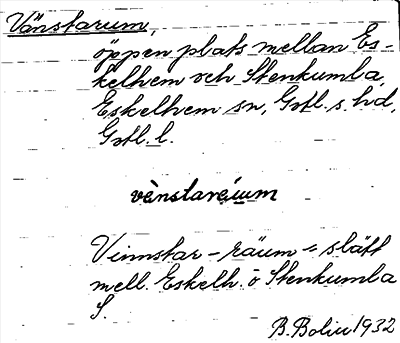 Vänstarum,
öppen plats mellan Es-
kelhem och Stenkumla,
Eskelhem sn, Gotl. s. hd,
Gotl. l.
Vinnstar-räum = slätt
mell. Eskelh. o Stenkumla
S.
B. Bolin 1932